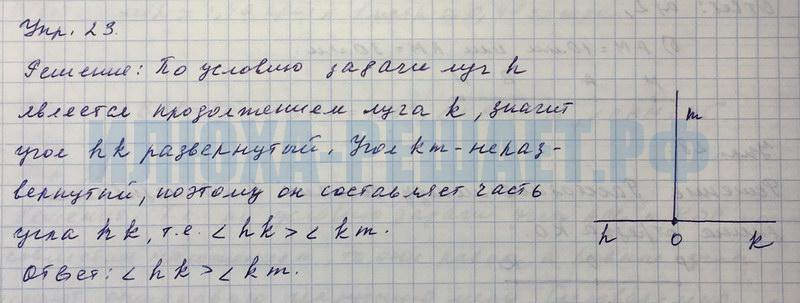 Упр. 23.
Решение: По условию задачи луч h
является продолжением луча k, значит
угол hk развернутый. Угол km - нераз-
вернутый, поэтому он составляет часть
угла hk, т.е. < hk > < km.
Ответ: < hk > < km.
m
h 0 k
ИЛЮХА-РЕШАЕТ.РФ